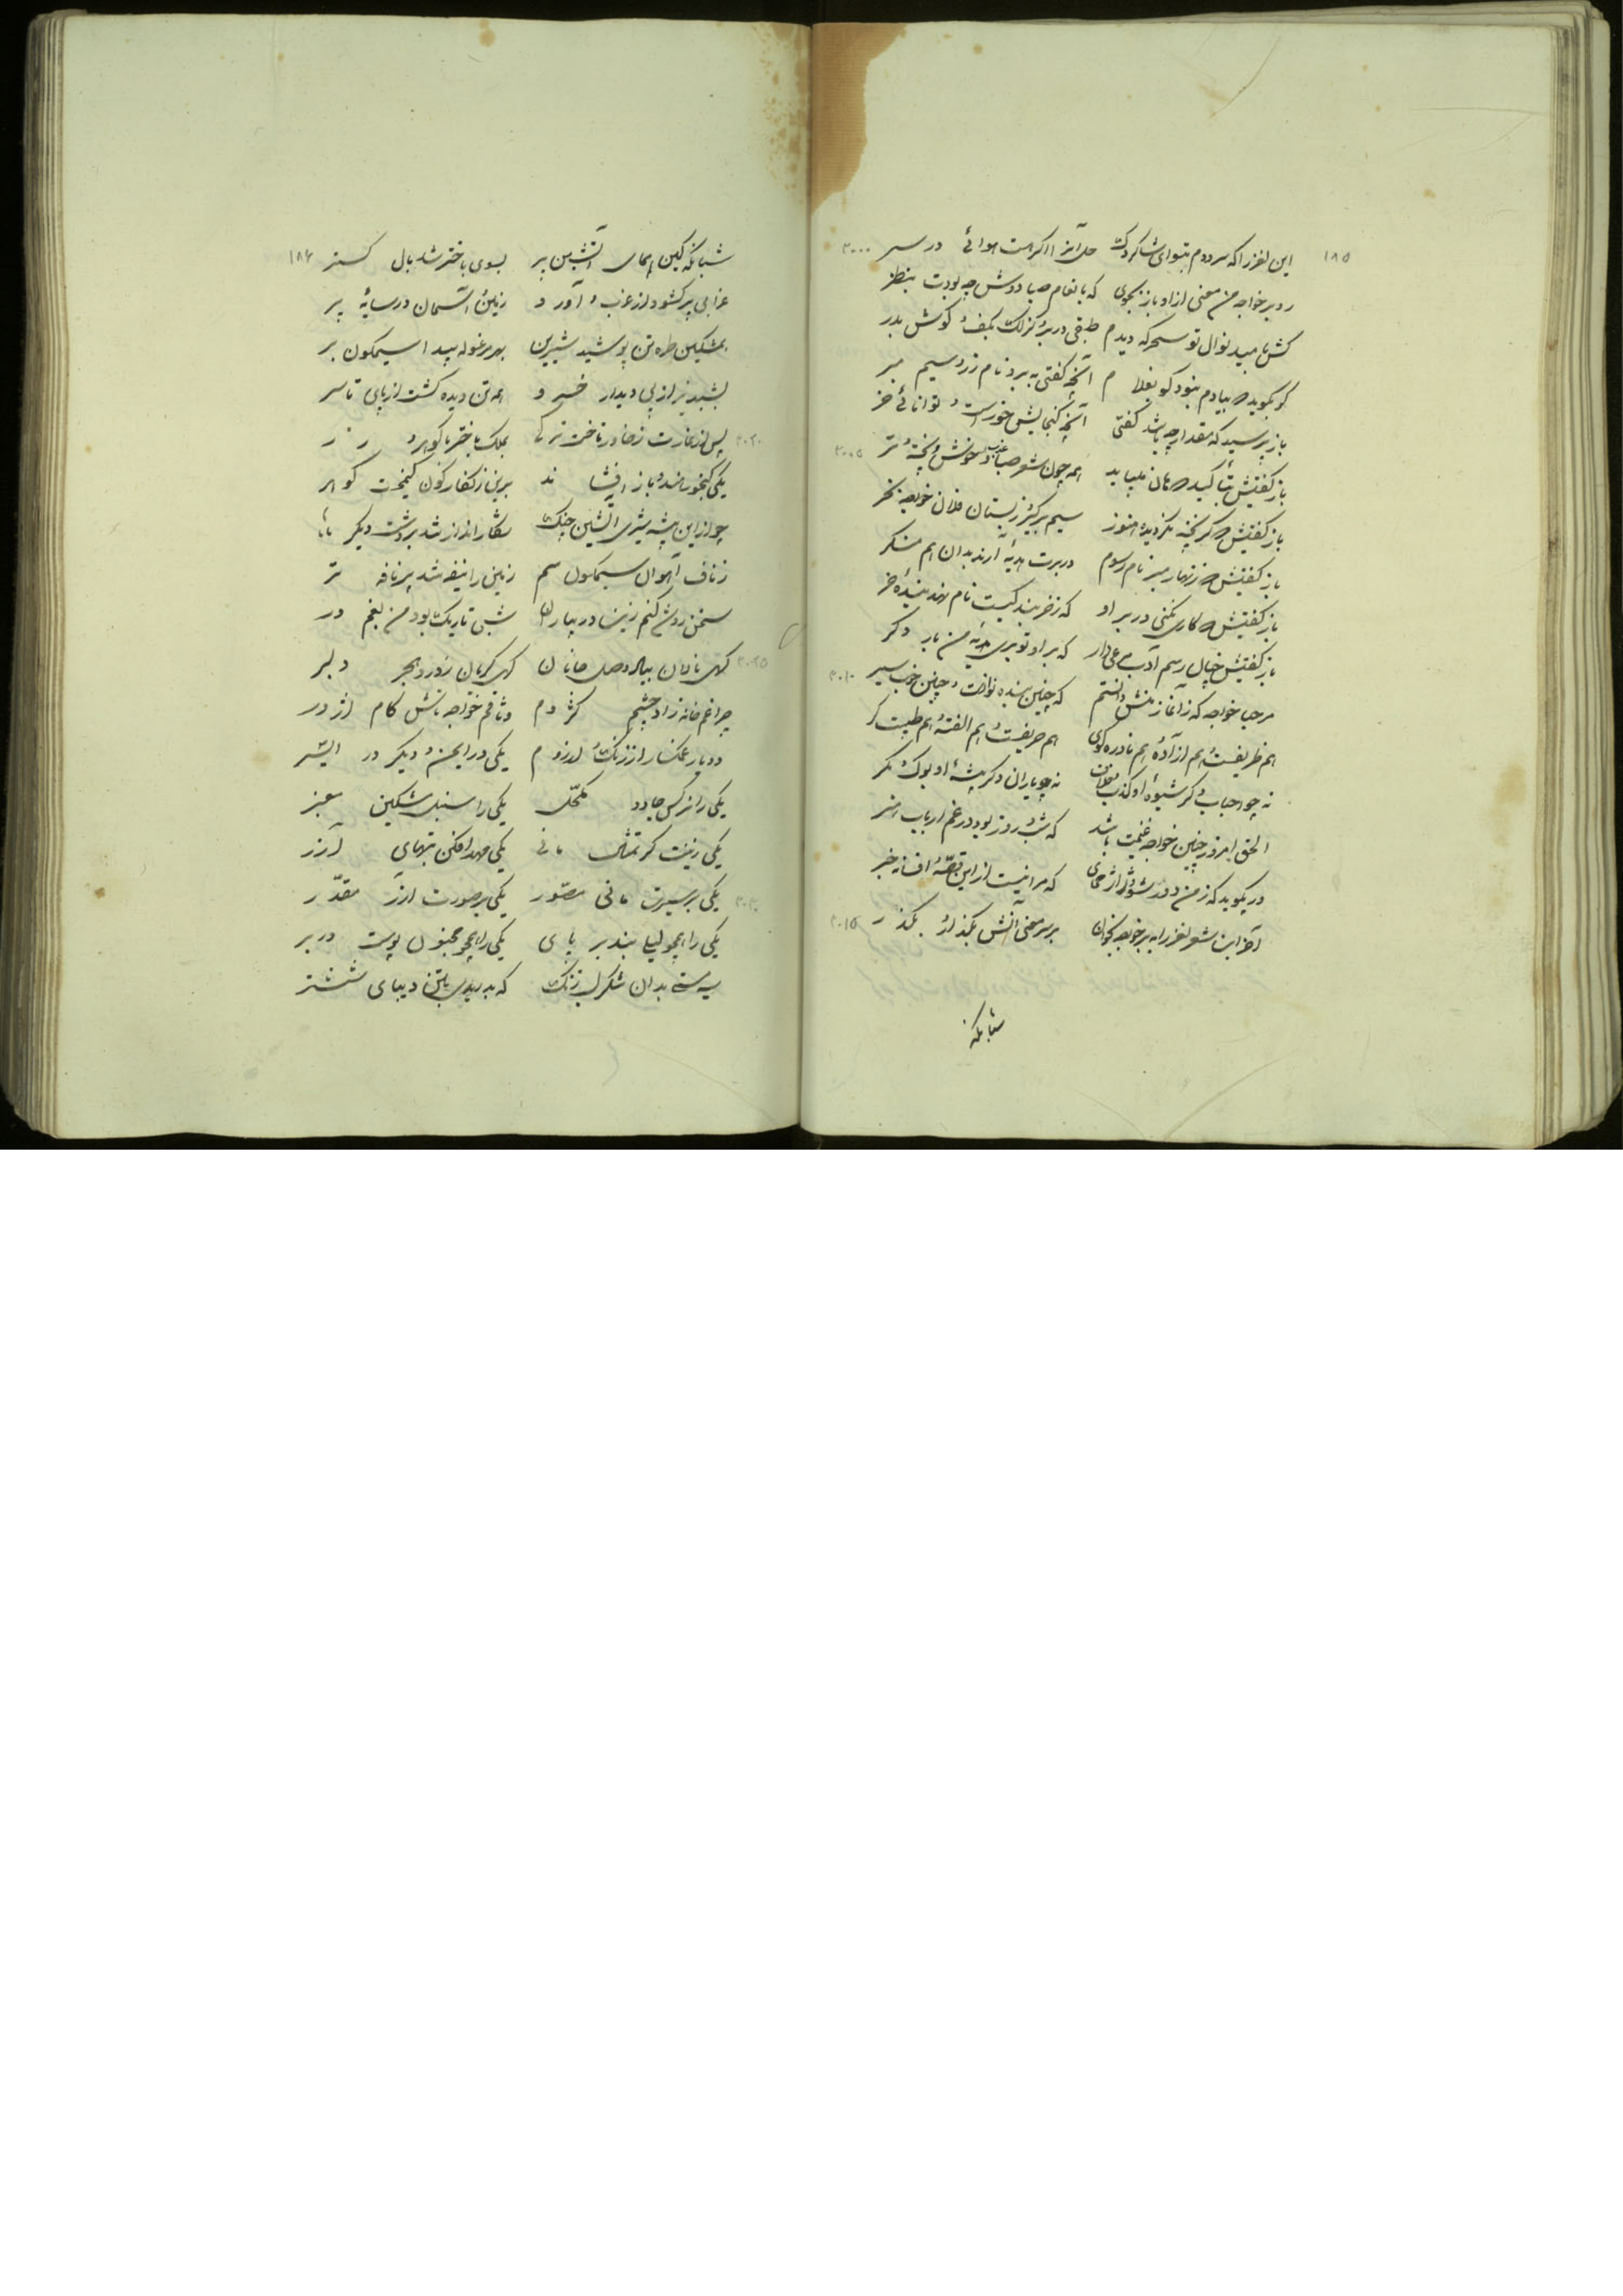 ۱۸۵
این لغز را که سرودم بتو ای شاکردک حل آنرا اکرت هست هوائی در سر ۲۰۰۰
رو بر خواجه من معنی از او باز بجوی که بانعام صبا دوش چه بودت بنظر
کش بامید نوال تو سحرکه دیدم طبقی در بر و کزلک بکف و کوش بدر
کو بکوید صبیادم بنود کو بغلام آنچه کفتی به برد نام زر و سیم مبر
باز پرسید که مقدار چه باشد کفتی آنچه کنجایش خورست و توانائی خر
باز کفتیش بتأکید همان میباید همه چون شعر صبا خوش و پخته و تر ۲۰۰۵
باز کفتیش کر پخته نکردیده هنوز سیم برکیر ز بستان فلان خواجه بخر
باز کفتیش زنهار مبر نام رسوم در برت هدیه آرند بدان هم منکر
باز کفتیش کاری نکنی در بر او که ز خربنده کیست نام نهد بنده خر
باز کفتیش رسم آدب مرعی دار که بر او تو بری هدیه من بار دکر
مرحبا خواجه که ز آغاز منش دانستم که چنین بنده نوازست و چنین خوب سیر ۲۰۱۰
هم ظریفست و هم آزاده و هم نادره کوی هم حریفست و هم الفته و هم طیبت کر
نه چو احباب دکر شیوه او کذب و خلاف نه چو یاران دکر پیشه او بوک و مکر
الحق امروز چنین خواجه غنیمت باشد که شب و روز بود در غم ارباب هنر
ور بکوید که ز من دور شو و ژاژ مخای که مرا نیست از این قصه و افسانه خبر
آخر این شعر لغز را به بر خواجه بخوان بر سر معنی آتش بکذار و بکذر ۲۰۱۵
شبانکه
۱۸۶
شبانکه کین همای آتشین پر بسوی باختر شد بال کستر
غرابی پر کشود از غرب و آورد زمین و آسمان در سایه پر
بمشکین طره تن پوشید شیرین بهر مرغوله پیدا سیمکون بر
بشبدیز از پی دیدار خسرو همه تن دیده کشت از پای تا سر
پس از غارت ز خاور تاخت ترکی بملک باختر با کوهر و زر ۲۰۲۰
یکی کیخور ماند و باز افشاند برین زنکار کون کیمخت کوهر
چو از این بیشه شیری آتشین چنک شکار انداز شد بر دشت دیکر
ز ناف آهوان سیمکون سم زمین را نیفه شد پر نافه تر
سخن روشن کنم زینسان در پیاران شبی تاریک بود و من بغم در
کهی نالان بیاد وصل جانان کهی کریان ز درد هجر دلبر ۲۰۲۵
چراغم خانه زاد چشم کژدم وثاقم خواجه تاش کام اژدر
دو یار غمکسار از زنک و از روم یکی در انجمن و دیکر در آتش
یکی را نرکس جادو مکحل یکی را سنبل مشکین معنبر
یکی زینت کر تمثال مانی یکی مهد افکن بتهای آزر
یکی بر سیرت مانی مصور یکی بر صورت آزر مقدر ۲۰۳۰
یکی را همچو لیلی بند بر پای یکی را همچو مجنون پوست در بر
که بدریدی بتن دیبای ششتر